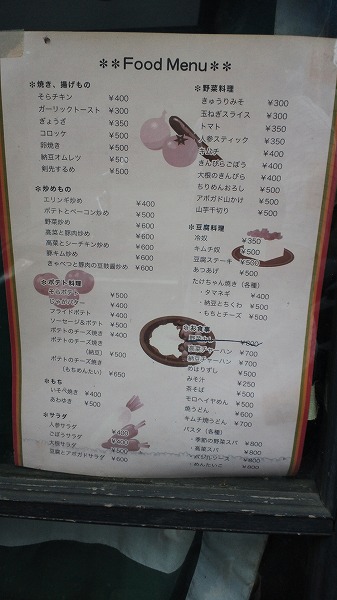 ＊＊Food Menu＊＊
＊焼き、揚げもの
そらチキン ¥400
ガーリックトースト ¥300
ぎょうざ ¥350
コロッケ ¥500
卵焼き ¥500
納豆オムレツ ¥500
剣先するめ ¥500
＊炒めもの
エリンギ炒め ¥400
ポテトとベーコン炒め ¥500
野菜炒め ¥600
高菜と豚肉炒め ¥600
高菜とシーチキン炒め ¥600
豚キム炒め ¥600
きゃべつと豚肉の豆鼓醤炒め ¥600
＊ポテト料理
そらポテト ¥500
じゃがバター ¥400
フライドポテト ¥400
ソーセージ&ポテト ¥500
ポテトのチーズ焼き ¥400
ポテトのチーズ焼き
（納豆） ¥500
ポテトのチーズ焼き
（もちめんたい） ¥650
＊もち
いそべ焼き ¥400
あわゆき ¥500
＊サラダ
人参サラダ ¥400
ごぼうサラダ ¥400
大根サラダ ¥500
豆腐とアボガドサラダ ¥600
＊野菜料理
きゅうりみそ ¥300
玉ねぎスライス ¥300
トマト ¥350
人参スティック ¥350
キムチ ¥400
きんぴらごぼう ¥400
大根のきんぴら ¥400
ちりめんおろし ¥500
アボガド山かけ ¥500
山芋千切り ¥500
＊豆腐料理
冷奴 ¥350
キムチ奴 ¥500
豆腐ステーキ ¥500
あつあげ ¥500
たけちゃん焼き（各種）
・タマネギ ¥400
・納豆とちくわ ¥500
・もちとチーズ ¥500
＊お食事
¥600
高菜チャーハン ¥700
納豆チャーハン ¥700
めはりずし ¥500
みそ汁 ¥250
茶そば ¥500
モロヘイヤめん ¥500
焼うどん ¥600
キムチ焼うどん ¥700
パスタ（各種）
・季節の野菜スパ ¥800
・高菜スパ ¥800
¥800
・めんたいこ ¥800